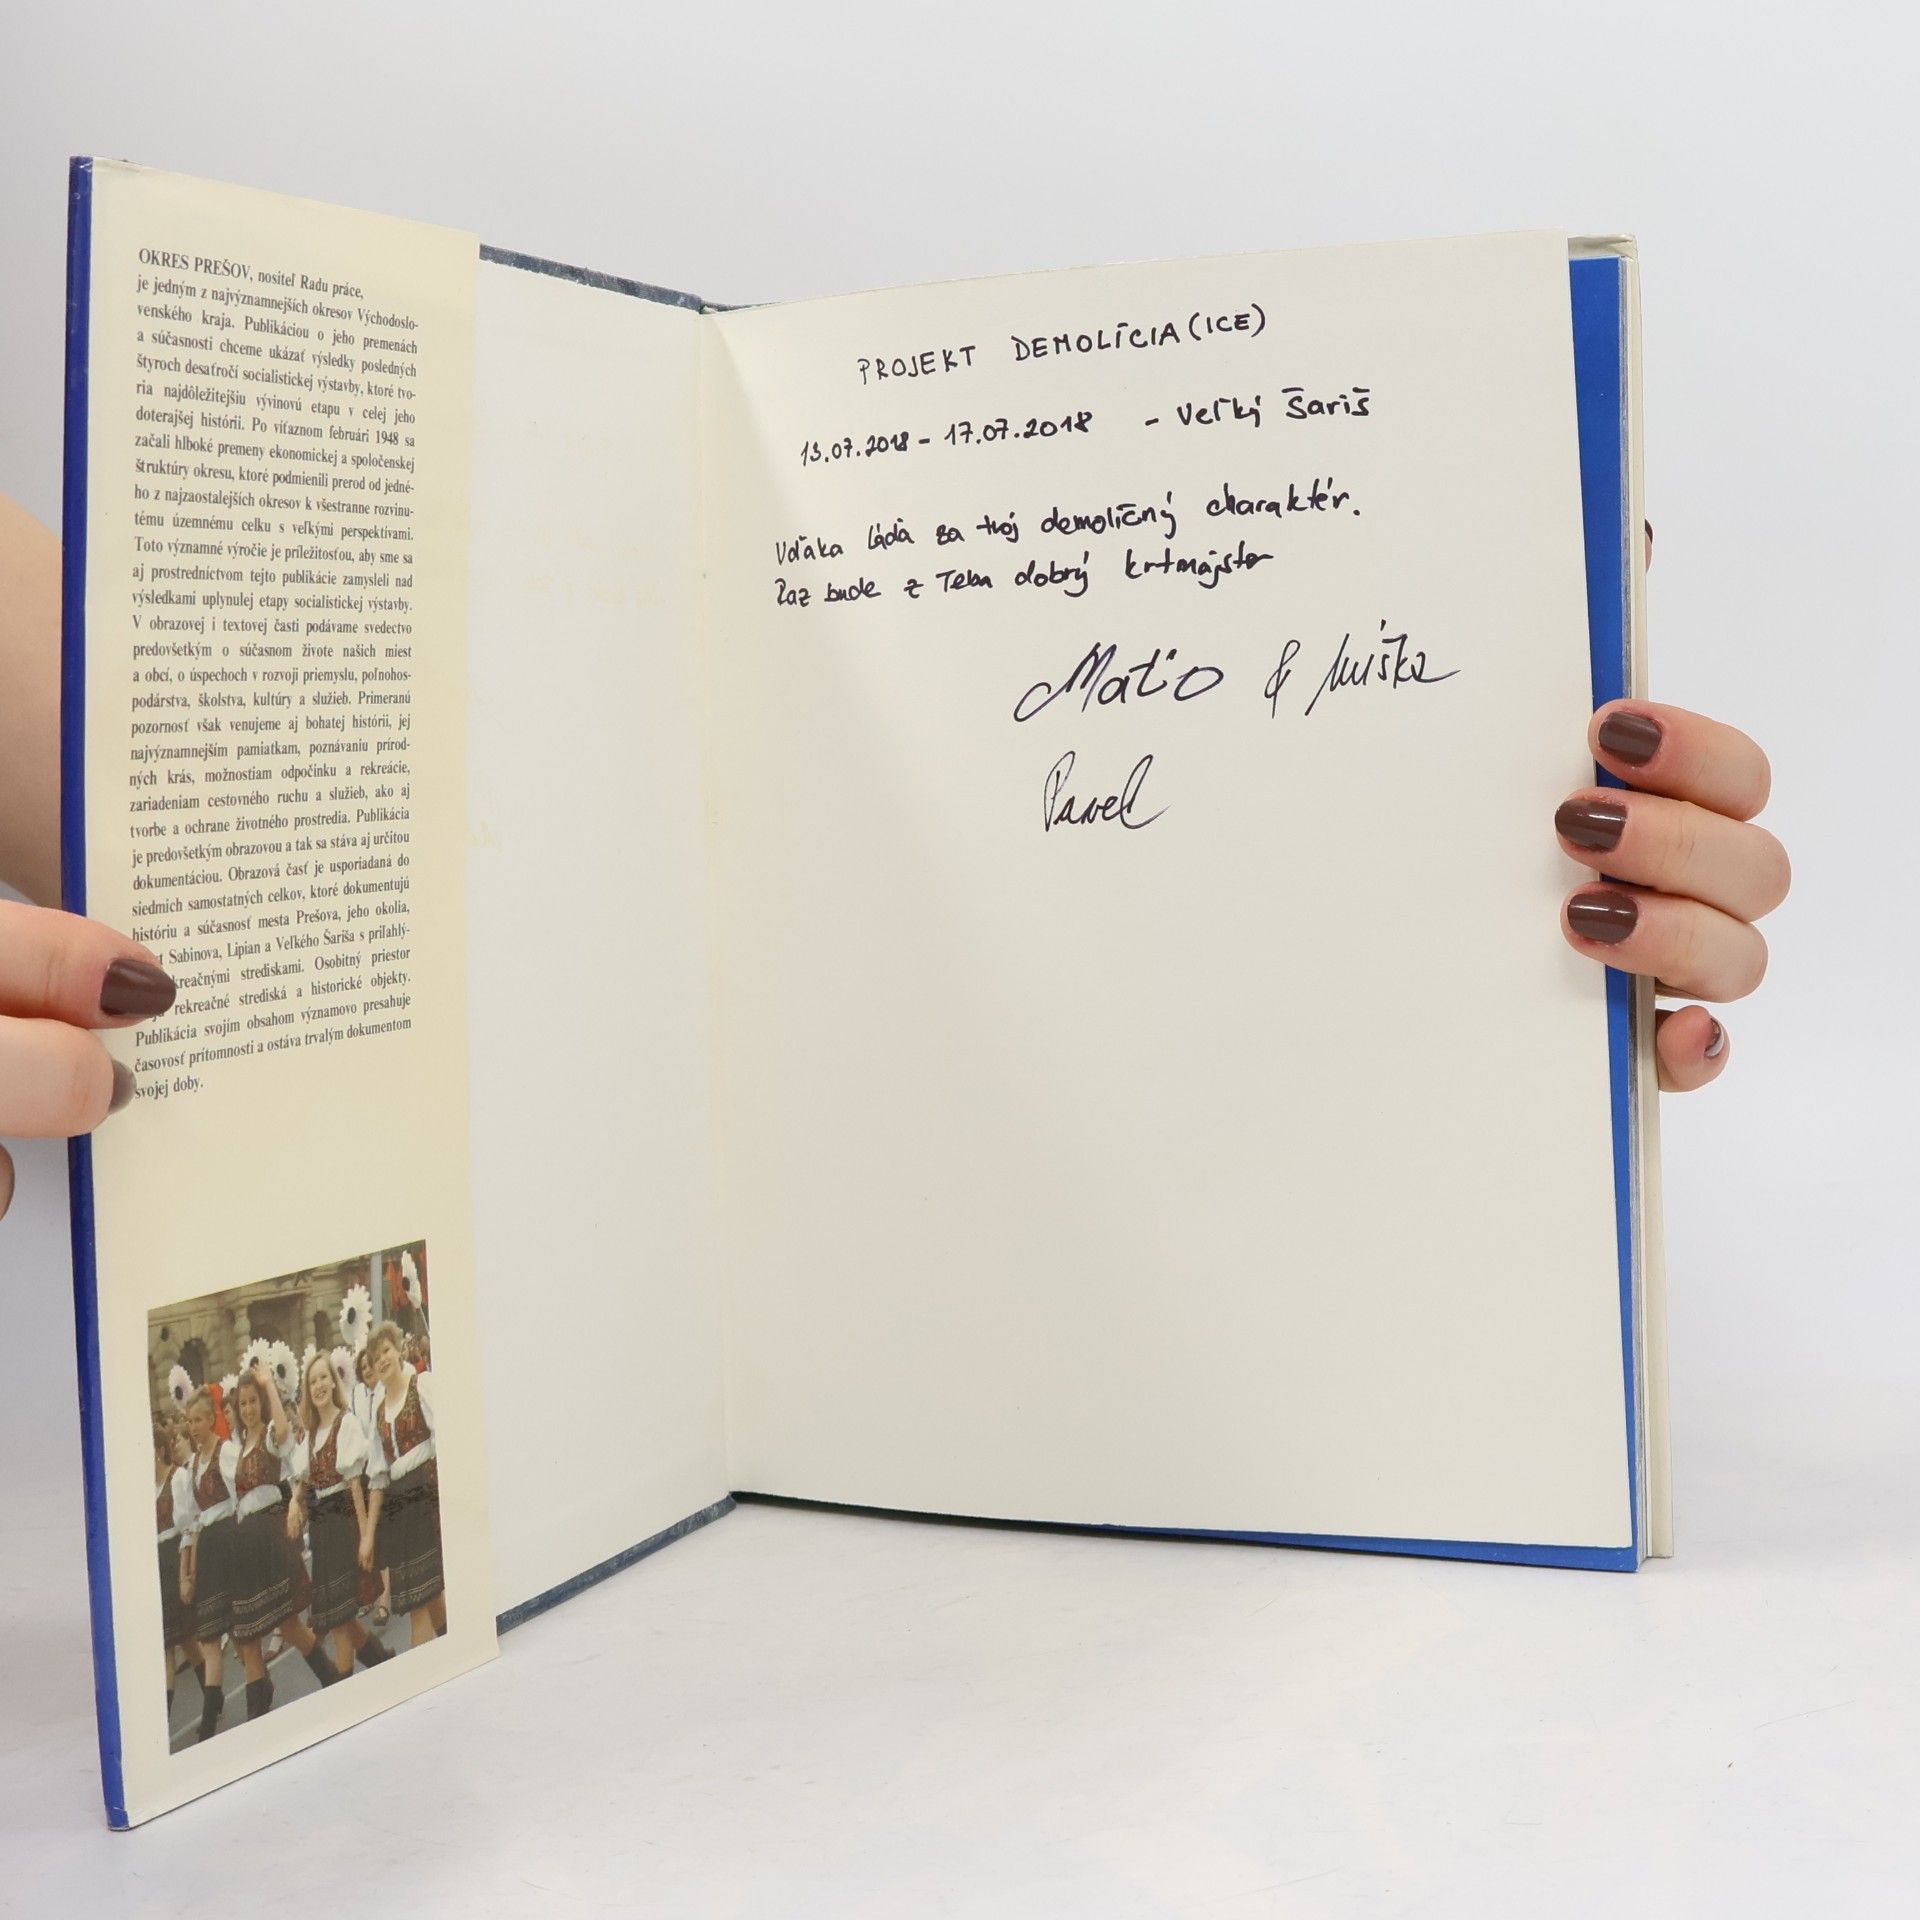 OKRES PREŠOV, nositeľ Radu práce,
je jedným z najvýznamnejších okresov Východoslo-
venského kraja. Publikáciou o jeho premenách
a súčasnosti chceme ukázať výsledky posledných
štyroch desaťročí socialistickej výstavby, ktoré tvo-
ria najdôležitejšiu vývinovú etapu v celej jeho
doterajšej histórii. Po víťaznom februári 1948 sa
začali hlboké premeny ekonomickej a spoločenskej
štruktúry okresu, ktoré podmienili prerod od jedné-
ho z najzaostalejších okresov k všestranne rozvinu-
tému územnému celku s veľkými perspektívami.
Toto významné výročie je príležitosťou, aby sme sa
aj prostredníctvom tejto publikácie zamysleli nad
výsledkami uplynulej etapy socialistickej výstavby.
V obrazovej i textovej časti podávame svedectvo
predovšetkým o súčasnom živote našich miest
a obcí, o úspechoch v rozvoji priemyslu, poľnohos-
podárstva, školstva, kultúry a služieb. Primeranú
pozornosť však venujeme aj bohatej histórii, jej
najvýznamnejším pamiatkam, poznávaniu prírod-
ných krás, možnostiam odpočinku a rekreácie,
zariadeniam cestovného ruchu a služieb, ako aj
tvorbe a ochrane životného prostredia. Publikácia
je predovšetkým obrazovou a tak sa stáva aj určitou
dokumentáciou. Obrazová časť je usporiadaná do
siedmich samostatných celkov, ktoré dokumentujú
históriu a súčasnosť mesta Prešova, jeho okolia,
Sabinova, Lipian a Veľkého Šariša s priľahlý-
kreačnými strediskami. Osobitný priestor
rekreačné strediská a historické objekty.
Publikácia svojím obsahom významovo presahuje
časovosť prítomnosti a ostáva trvalým dokumentom
svojej doby.
PROJEKT DEMOLÍCIA (ICE)
13.07.2018 - 17.07.2018 - Veľký Šariš
Vďaka Láďa za tvoj demoličný charaktér.
Raz bude z Teba dobrý krtmajster
Maťo & Miška
Pavel